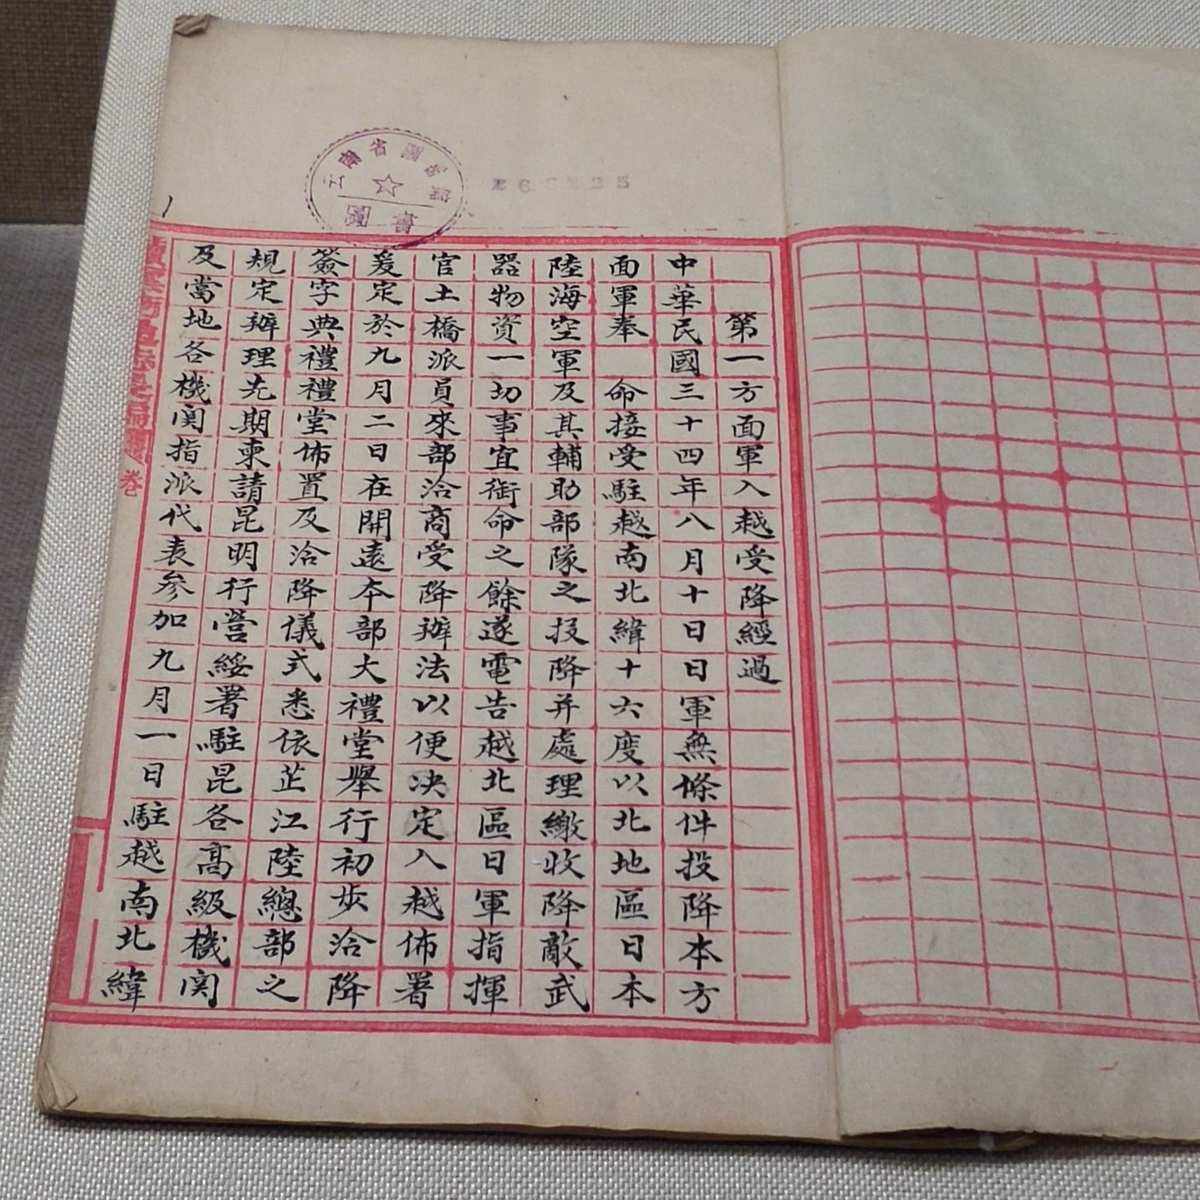 第一方面軍入越受降經過
中華民國三十四年八月十日日軍無條件投降本方
面軍奉 命接受駐越南北緯十六度以北地區日本
陸海空軍及其輔助部隊之投降并處理繳收降敵武
器物資一切事宜銜命之餘遂電告越北區日軍指揮
官土橋派員來部洽商受降辦法以便決定入越佈署
爰定於九月二日在開遠本部大禮堂舉行初步洽降
簽字典禮禮堂佈置及洽降儀式悉依芷江陸總部之
規定辦理先期柬請昆明行營綏署駐昆各高級機関
及當地各機関指派代表參加九月一日駐越南北緯
卷
云南省圖書館